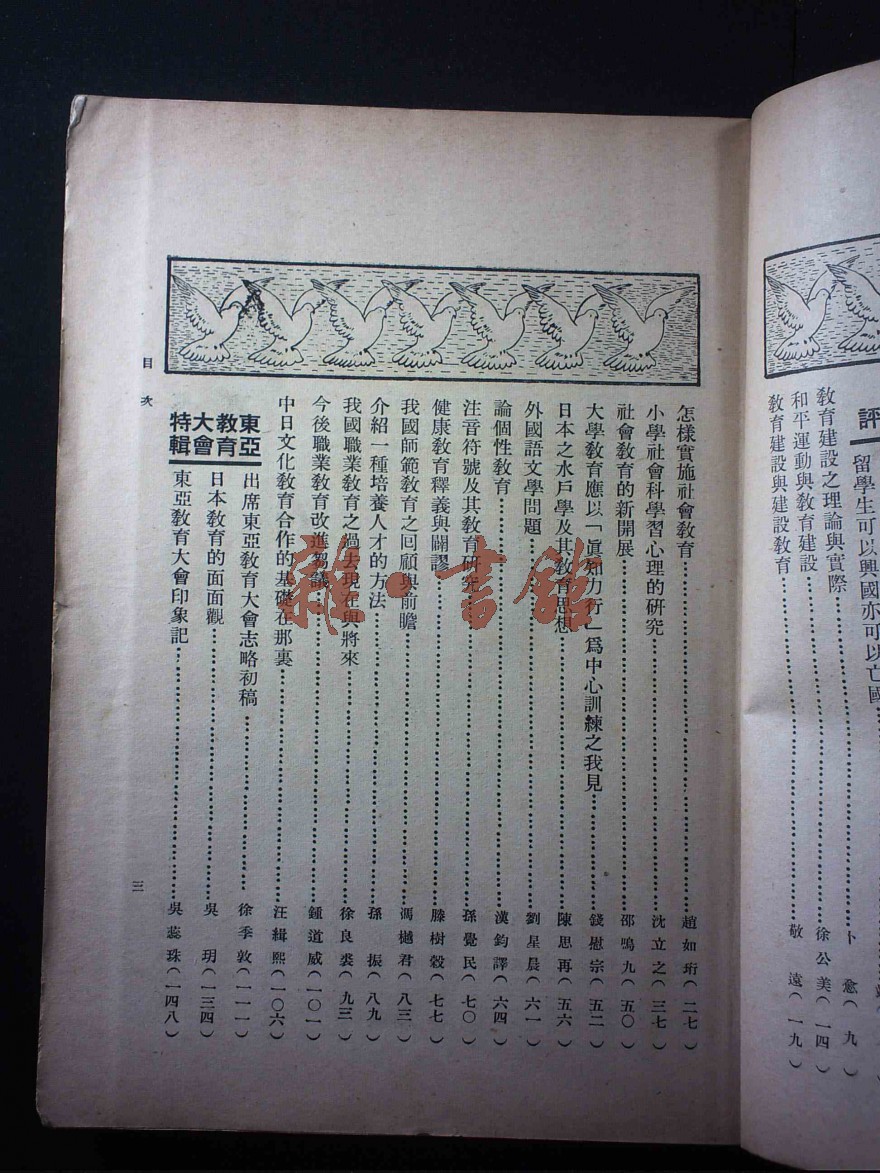 評
留學生可以興國亦可以亡國
教育建設之理論與實際……卜愈(九)
和平運動與教育建設……徐公美(一四)
教育建設與建設教育……敬遠(一九)
怎樣實施社會教育……趙如珩(二七)
小學社會科學習心理的研究……沈立之(三七)
社會教育的新開展……邵鳴九(五〇)
大學教育應以「眞知力行」爲中心訓練之我見……錢慰宗(五二)
日本之水戶學及其教育思想……陳思再(五六)
外國語文學問題……劉星晨(六一)
論個性教育……漢鈞譯(六四)
注音符號及其教育研究……孫覺民(七〇)
健康教育釋義與闢謬……滕樹穀(七七)
我國師範教育之回顧與前瞻……馮樾君(八三)
介紹一種培養人才的方法……孫振(八九)
我國職業教育之過去現在與將來……徐良裘(九三)
今後職業教育改進芻議……鍾道威(一〇一)
中日文化教育合作的基礎在那裏……汪緝熙(一〇六)
東亞教育大會特輯
出席東亞教育大會志略初稿……徐季敦(一一一)
日本教育的面面觀……吳玥(一三四)
東亞敎育大會印象記……吳蕊珠(一四八)
目次
三
雜·書館